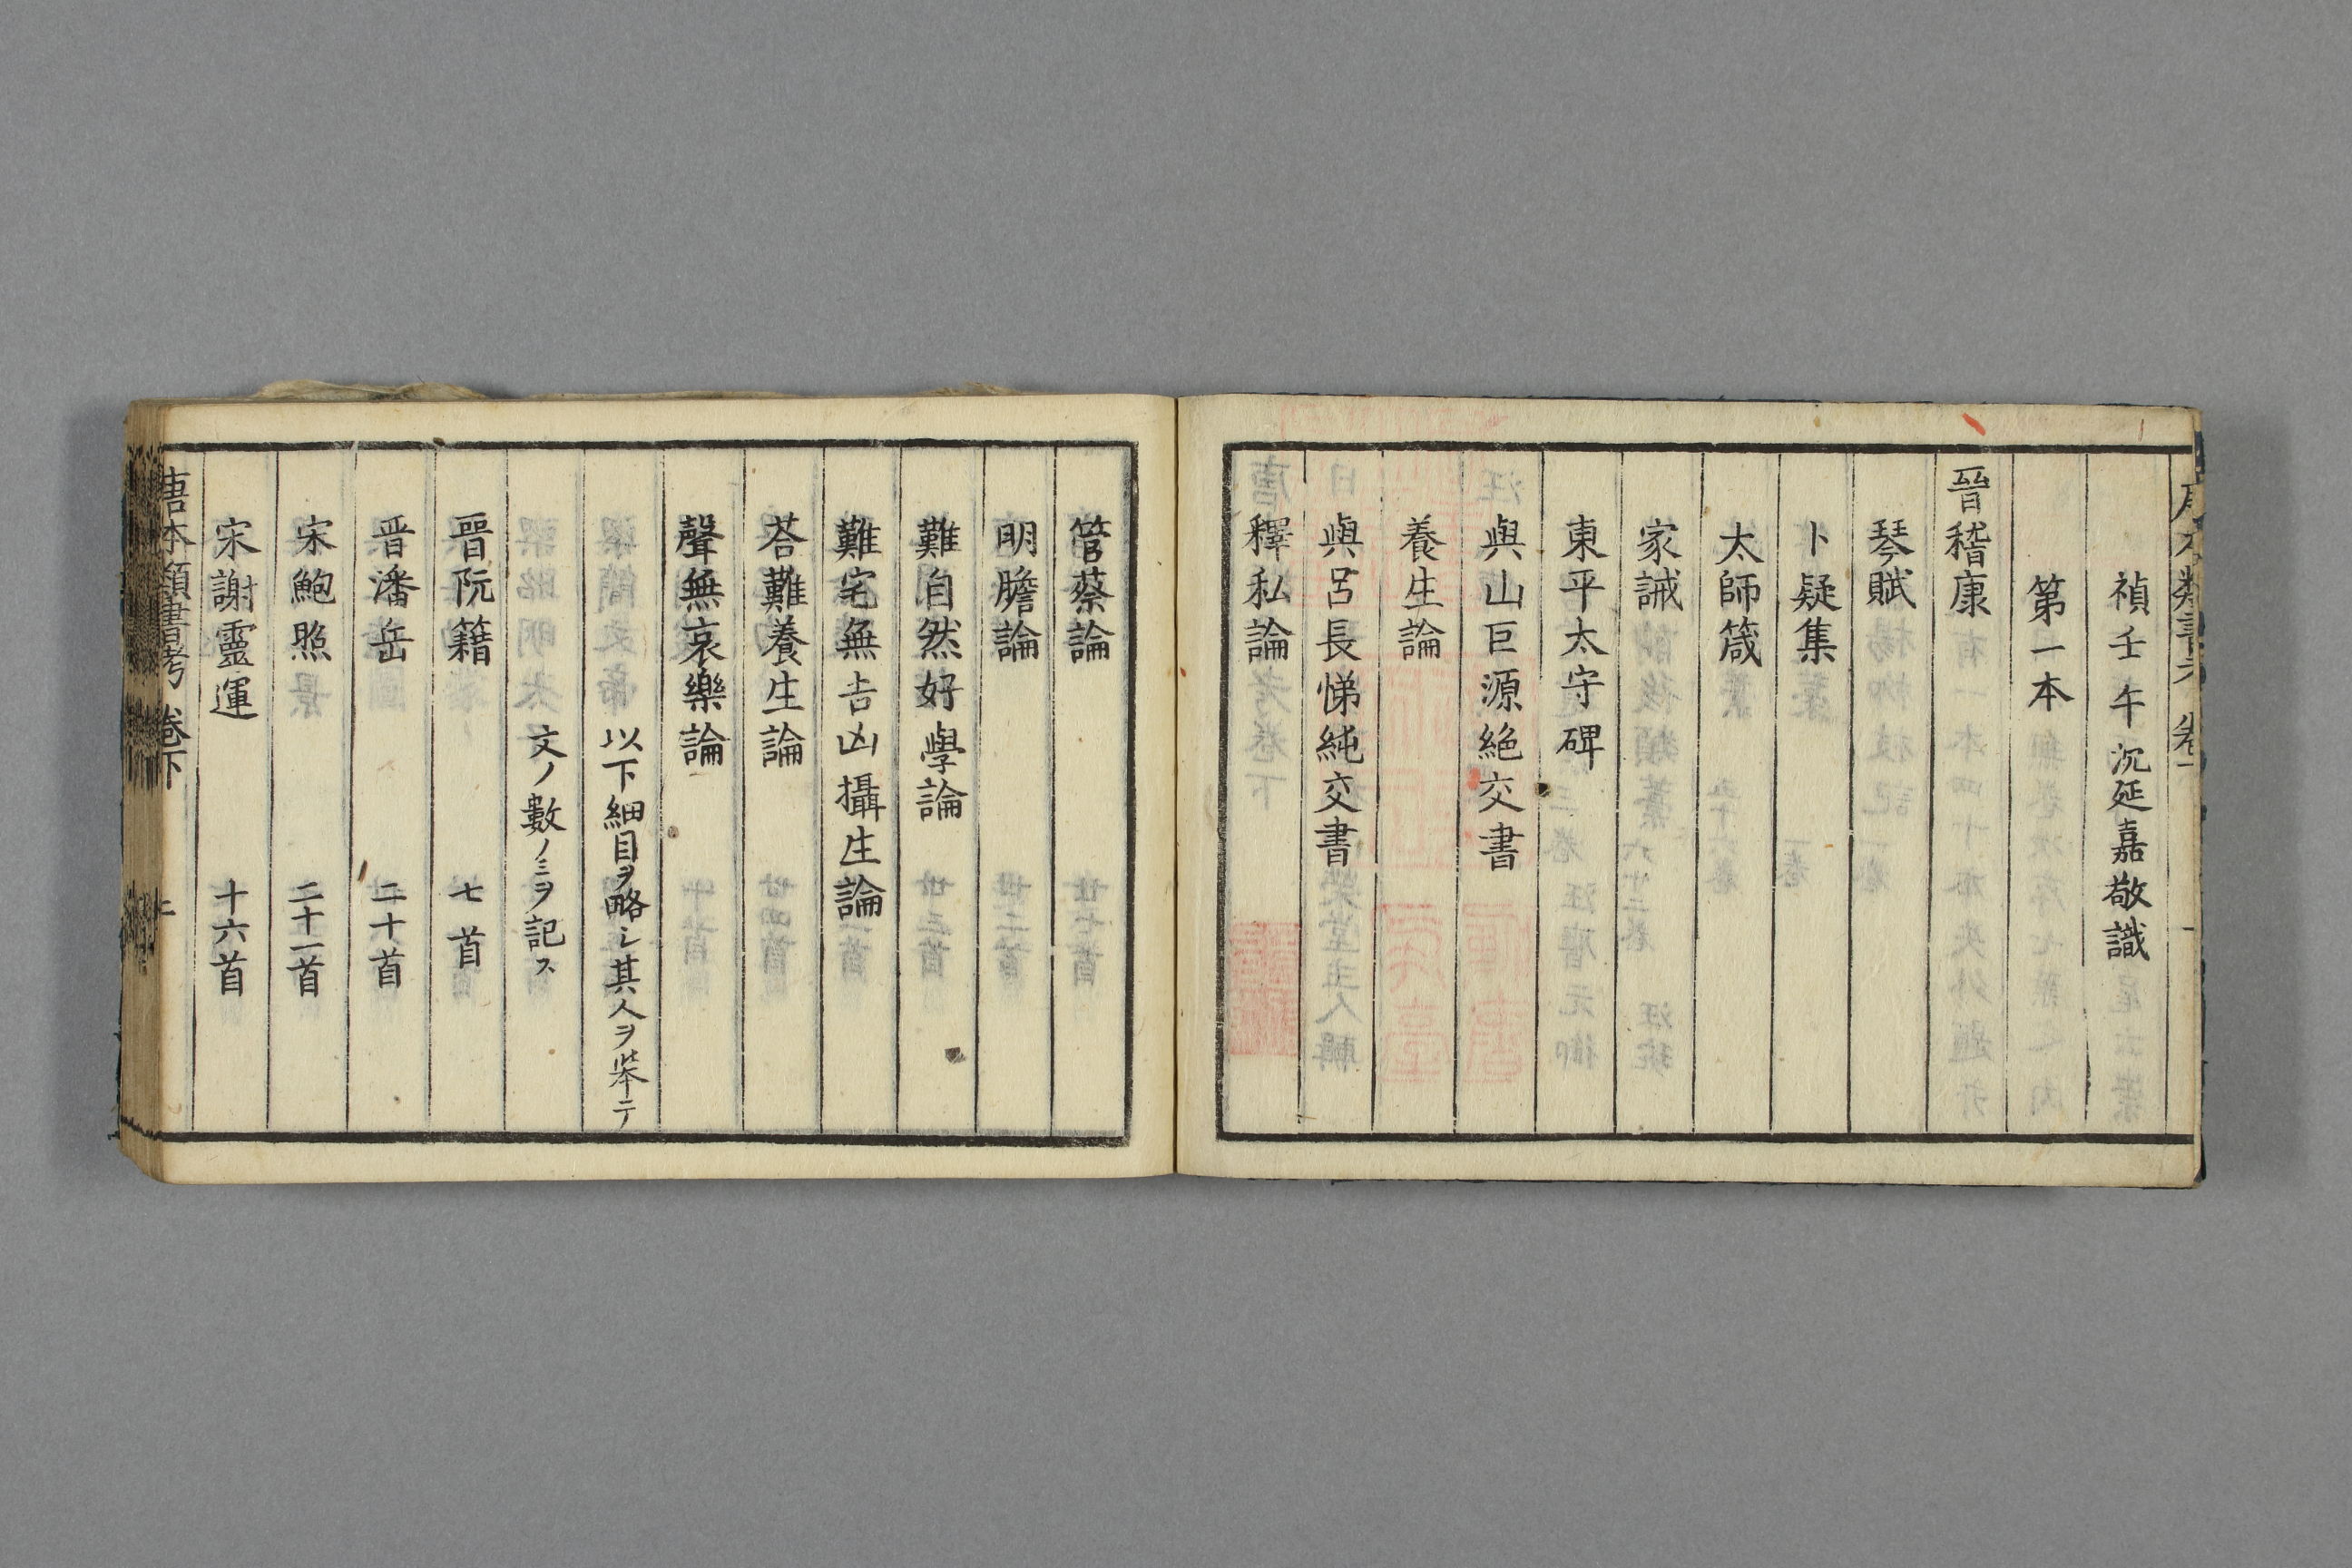 禎壬午沉延嘉敬識
第一本
晉嵇康
琴賦
卜疑集
太師箴
家誡
東平太守碑
與山巨源絶交書
養生論
與呂長悌純交書
釋私論
管蔡論
明膽論
難自然好學論
難宅無吉凶攝生論
荅難養生論
聲無哀樂論
以下細目ヲ略シ其人ヲ举テ
文ノ數ノミヲ記ス
晉阮籍 七首
晋潘岳 二十首
宋鮑照 二十一首
宋謝靈運 十六首
唐本類書考 卷下